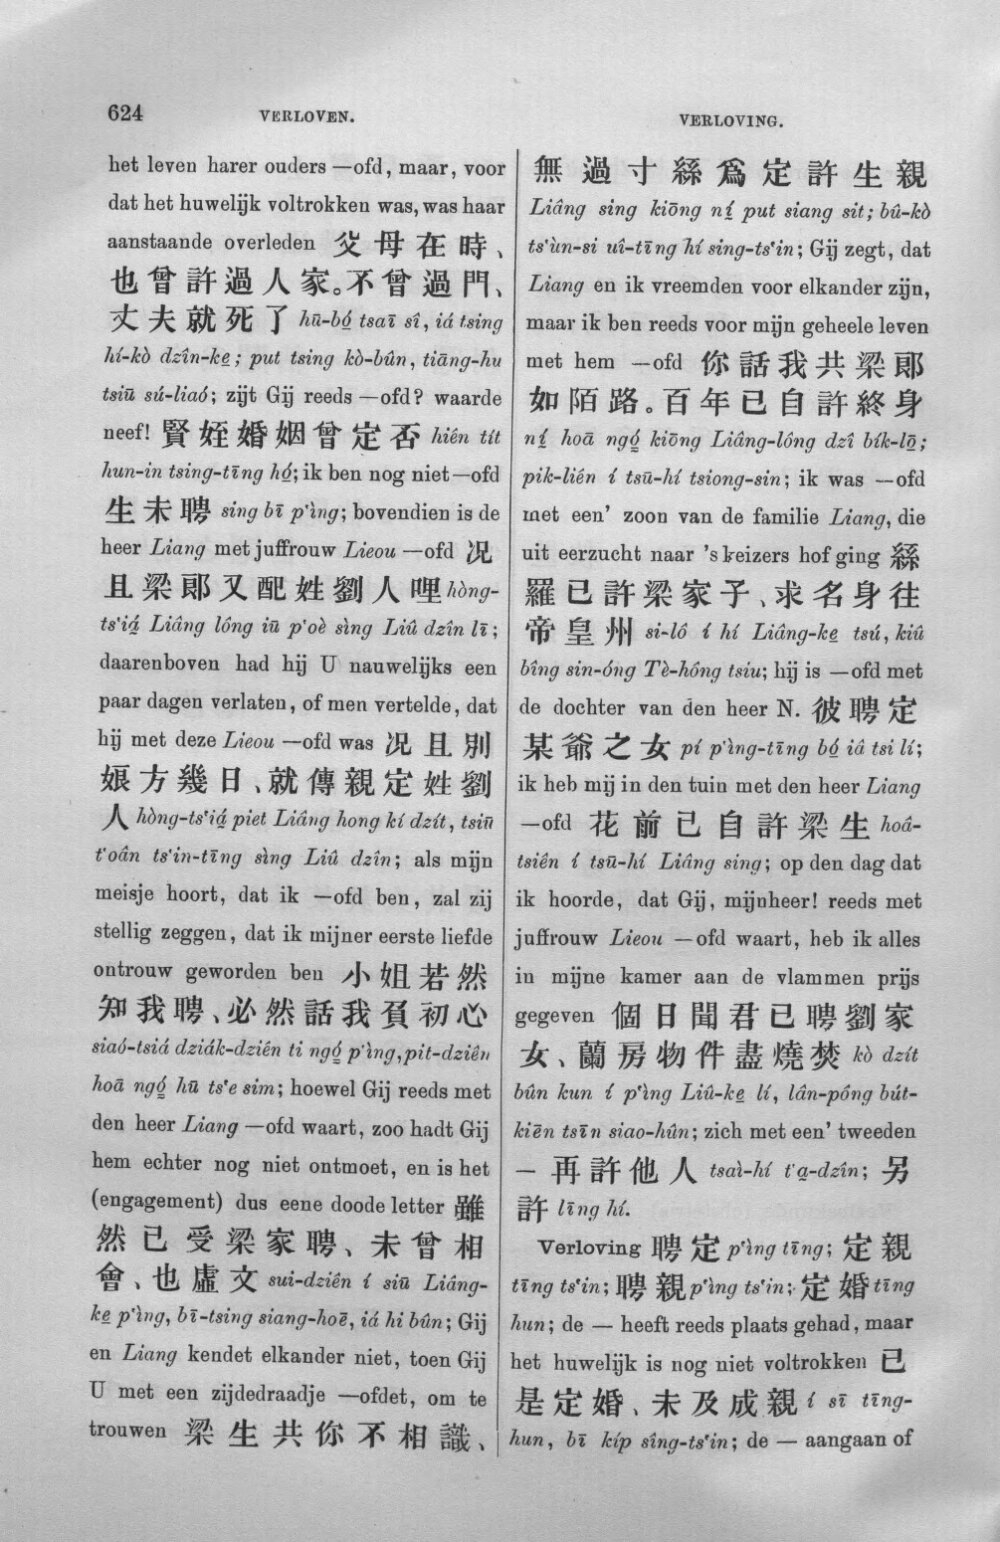 624 VERLOVEN.
VERLOVING.
het leven harer ouders —ofd, maar, voor
dat het huwelijk voltrokken was, was haar
aanstaande overleden 爻母在時、
也曾許過人家。不曾過門、
丈夫就死了 hū-bó̤ tsaī sî, iá tsing
hí-kò dzîn-ke̤; put tsing kò-bûn, tiāng-hu
tsiū sú-liaó; zijt Gij reeds —ofd? waarde
neef! 賢姪婚姻曾定否 hiên tít
hun-in tsing-tīng hó̤; ik ben nog niet—ofd
生未聘 sing bī p‘ìng; bovendien is de
heer Liang met juffrouw Lieou —ofd 况
且梁郞又配姓劉人哩 hòng-
ts‘iá̤ Liâng lông iū p‘oè sìng Liû dzîn lī;
daarenboven had hij U nauwelijks een
paar dagen verlaten, of men vertelde, dat
hij met deze Lieou —ofd was 况且別
娘方幾日、就傳親定姓劉
人 hòng-ts‘iá̤ piet Liâng hong kí dzít, tsiū
t‘oân ts‘in-tīng sìng Liû dzîn; als mijn
meisje hoort, dat ik —ofd ben, zal zij
stellig zeggen, dat ik mijner eerste liefde
ontrouw geworden ben 小姐若然
知我聘、必然話我負初心
siaó-tsiá dziák-dziên ti ngó̤ p‘ìng, pit-dziên
hoā ngó̤ hū ts‘e sim; hoewel Gij reeds met
den heer Liang —ofd waart, zoo hadt Gij
hem echter nog niet ontmoet, en is het
(engagement) dus eene doode letter 雖
然已受梁家聘、未曾相
會、也虛文 sui-dziên í siū Liâng-
ke̤ p‘ìng, bī-tsing siang-hoē, iá hi bûn; Gij
en Liang kendet elkander niet, toen Gij
U met een zijdedraadje —ofdet, om te
trouwen 梁生共你不相識、
無過寸絲爲定許生親
Liâng sing kiōng ní̤ put siang sit; bû-kò
ts‘ùn-si uî-tīng hí sing-ts‘in; Gij zegt, dat
Liang en ik vreemden voor elkander zijn,
maar ik ben reeds voor mijn geheele leven
met hem —ofd 你話我共梁郞
如陌路。百年已自許終身
ní̤ hoā ngó̤ kiōng Liâng-lông dzî bík-lō̤;
pik-liên í tsū-hí tsiong-sin; ik was —ofd
met een’ zoon van de familie Liang, die
uit eerzucht naar ’s keizers hof ging 絲
羅已許梁家子、求名身往
帝皇州 si-lô í hí Liâng-ke̤ tsú, kiû
bîng sin-óng Tè-hông tsiu; hij is —ofd met
de dochter van den heer N. 彼聘定
某爺之女 pí p‘ìng-tīng bó̤ iâ tsi lí;
ik heb mij in den tuin met den heer Liang
—ofd 花前已自許梁生 hoâ-
tsiên í tsū-hí Liâng sing; op den dag dat
ik hoorde, dat Gij, mijnheer! reeds met
juffrouw Lieou —ofd waart, heb ik alles
in mijne kamer aan de vlammen prijs
gegeven 個日聞君已聘劉家
女、蘭房物件盡燒焚 kò dzít
bûn kun í p‘ìng Liû-ke̤ lí, lân-pông bút-
kiēn tsīn siao-hûn; zich met een’ tweeden
— 再許他人 tsaì-hí t‘a̤-dzîn; 另
許 līng hí.
Verloving 聘定 p‘ìng tīng; 定親
tīng ts‘in; 聘親 p‘ìng ts‘in; 定婚 tīng
hun; de — heeft reeds plaats gehad, maar
het huwelijk is nog niet voltrokken 已
是定婚、未及成親 í sī tīng-
hun, bī kíp sîng-ts‘in; de — aangaan of